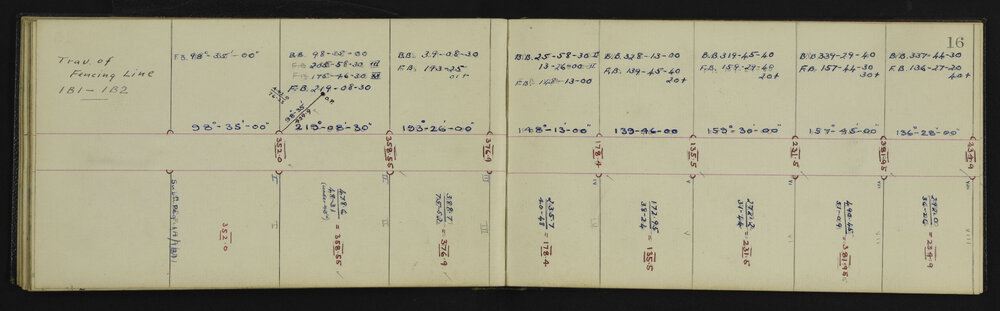 16
Trav. of
Fencing Line
1B1 - 1B2
F.B. 98°-35'-00"
98°-35'-00"
B.B. 98-35-00
F.B. 205-58-30 III
F.B. 175-46-30 XI
F.B. 219-08-30
O.P.
98°-35'
219°-08'-30"
B.B. 39-08-30
F.B. 193-25
01+
193°-26'-00"
B.B. 25-58-30 II
13-26-00 II
F.B. 148-13-00
148°-13'-00"
B.B. 328-13-00
F.B. 139-45-40
20+
139-46-00
B.B. 319-45-40
F.B. 159-29-40
20+
159°-30'-00"
B.B. 339-29-40
F.B. 157-44-30
30+
157°-45'-00"
B.B. 337-44-30
F.B. 136-27-20
40+
136°-28'-00"
352.0
358.55
376.9
178.4
135.5
231.5
381.95
254.9
352.0
478.6
= 358.55
388.7
= 376.9
235.7
40-48
= 178.4
172.95
38-24
= 135.5
272.2
31-44
= 231.5
440.45
= 381.95
292.0
= 254.9
I
II
III
IV
V
VI
VII
VIII